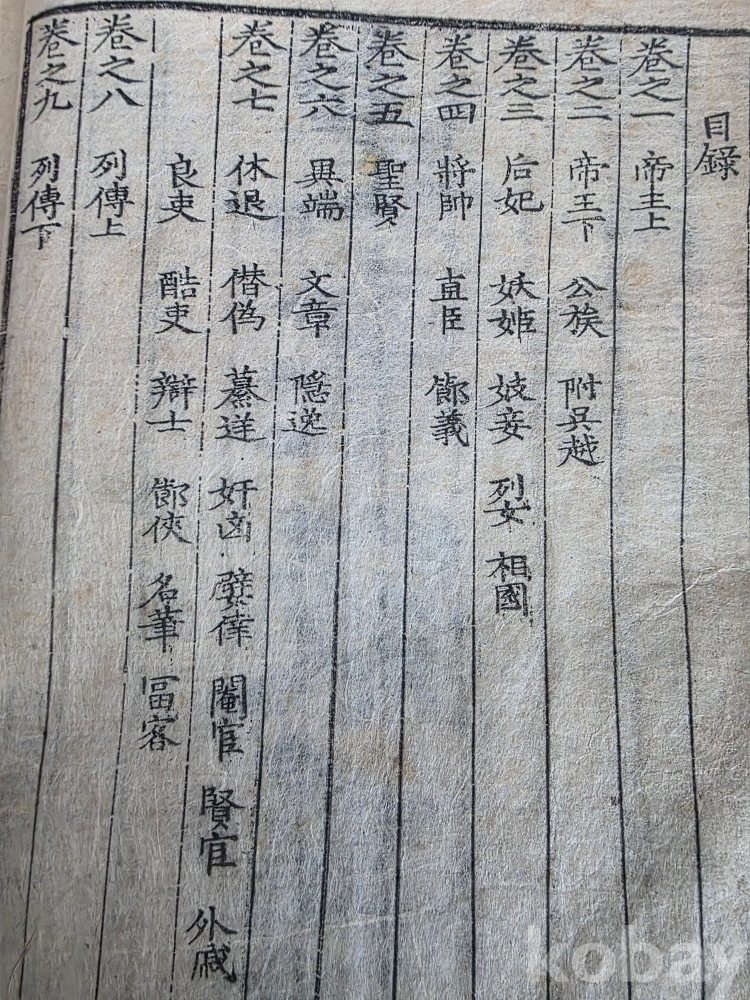 目錄
卷之一 帝王上
卷之二 帝王下 公族 附吳越
卷之三 后妃 妖姬 妓妾 列女 相國
卷之四 將帥 直臣 節義
卷之五 聖賢
卷之六 異端 文章 隱逸
卷之七 休退 僭偽 纂逆 奸凶 嬖倖 閹宦 賢宦 外戚
良吏 酷吏 辯士 節俠 名筆 畐客
卷之八 列傳上
卷之九 列傳下
kobay